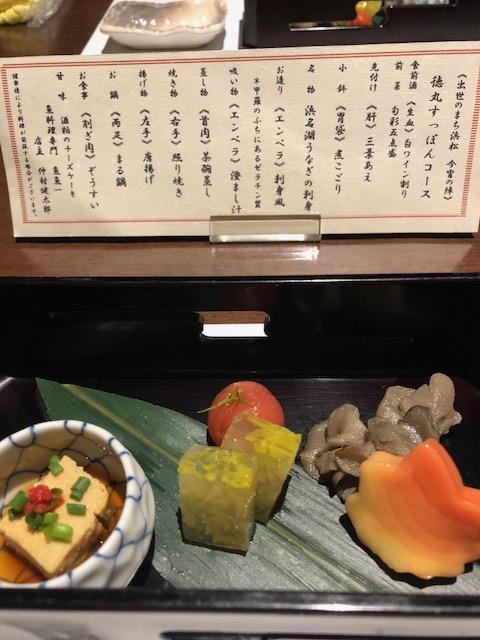 《出世のまち浜松 今宵の陣》
徳丸すっぽんコース
食前酒 《生血》白ワイン割り
前菜 旬彩五点盛
先付け 《肝》三葉あえ
小鉢 《胃袋》煮こごり
名物 浜名湖うなぎの刺身
お造り 《エンペラ》刺身風
※甲羅のふちにあるゼラチン質
吸い物 《エンペラ》澄まし汁
蒸し物 《首肉》茶碗蒸し
焼き物 《右手》照り焼き
揚げ物 《左手》唐揚げ
お鍋 《両足》まる鍋
お食事 《削ぎ肉》ぞうすい
甘味 酒粕のチーズケーキ
魚料理専門 魚魚一
店主 仲村健太郎
諸事情により料理が前後する場合がございます。